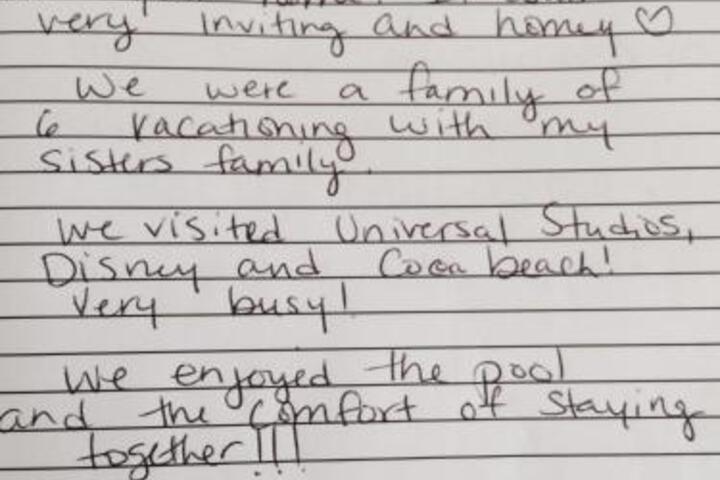 very inviting and homey ♡
We were a family of
6 vacationing with my
sisters family.
We visited Universal Studios,
Disney and Cocoa beach!
Very busy!
We enjoyed the pool
and the comfort of staying
together!!!